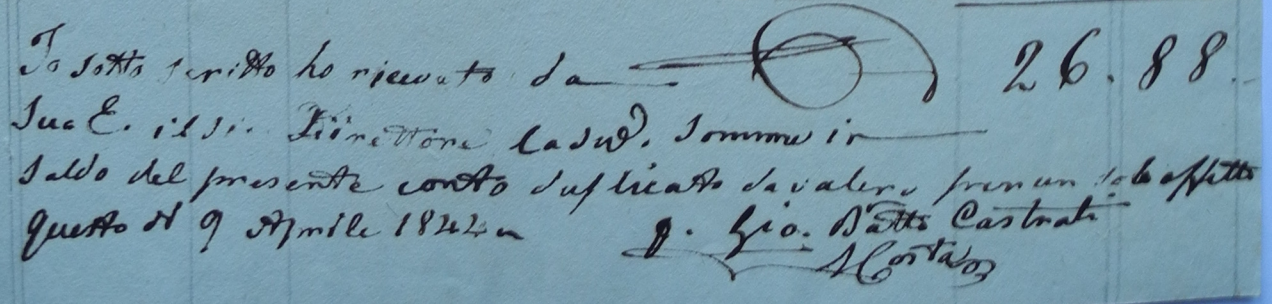 Io sotto scritto ho ricevuto da 26.88.
Sua E. il Si. Direttore la sud. Somma in
Saldo del presente conto duplicato da valere per un solo effetto
questo dì 9 Aprile 1844
p. Gio. Batta Castrati
A Costa